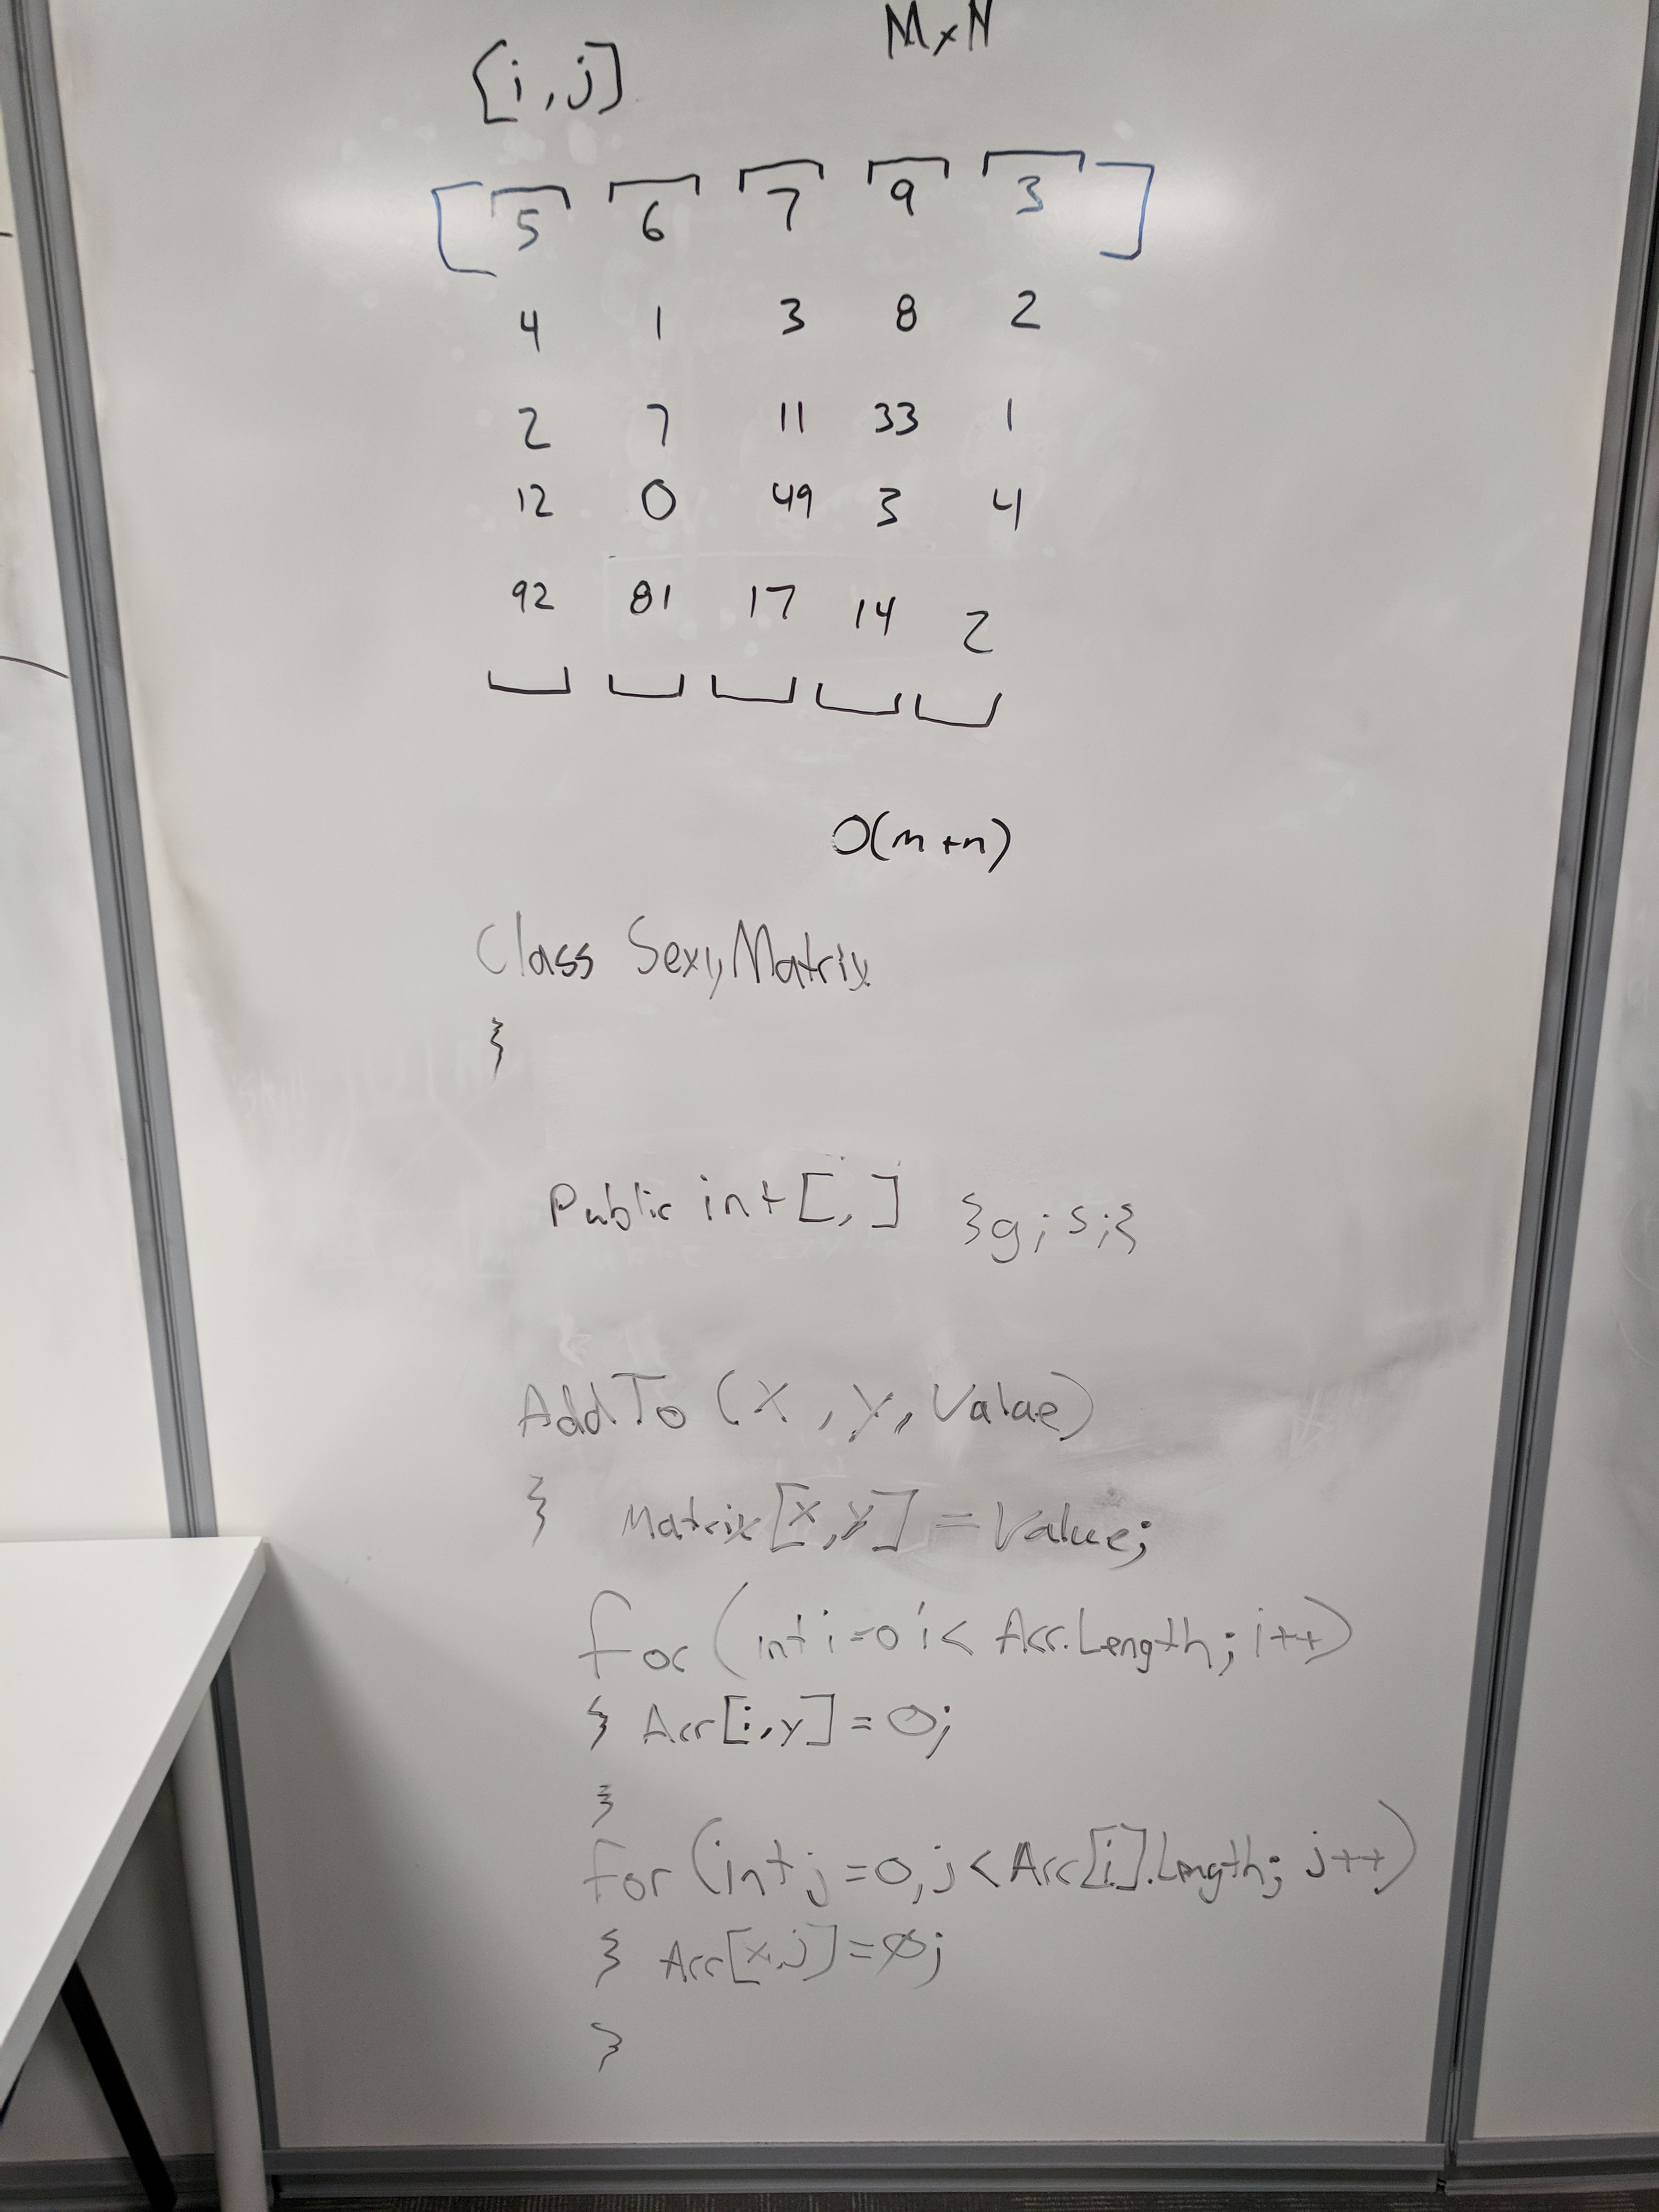 MxN
[i,j]
[5 6 7 9 3]
4 1 3 8 2
2 7 11 33 1
12 0 49 3 4
92 81 17 14 2
O(m+n)
Class SexyMatrix
{
Public int[,] {g; s;}
AddTo (X, Y, Value)
{ Matrix[X,Y] = Value;
for (int i=0 i< Arr.Length; i++)
{ Arr[i,y] = 0;
}
for (int j=0, j< Arr[i].Length; j++)
{ Arr[x,j]=0;
}